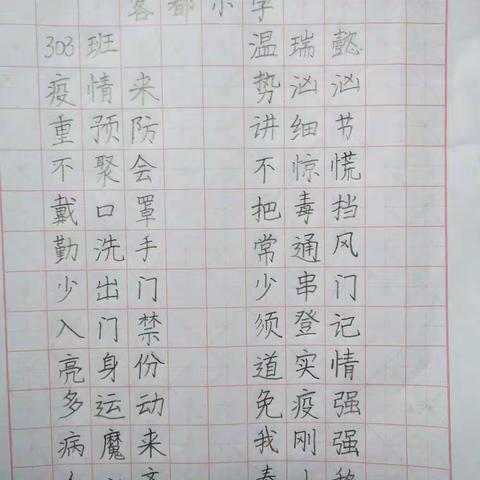 客都小学
303班 温瑞懿
疫情来 势汹汹
重预防 讲细节
不聚会 不惊慌
戴口罩 把毒挡
勤洗手 常通风
少出门 少串门
入门禁 须登记
亮身份 道实情
多运动 免疫强
病魔来 我刚强